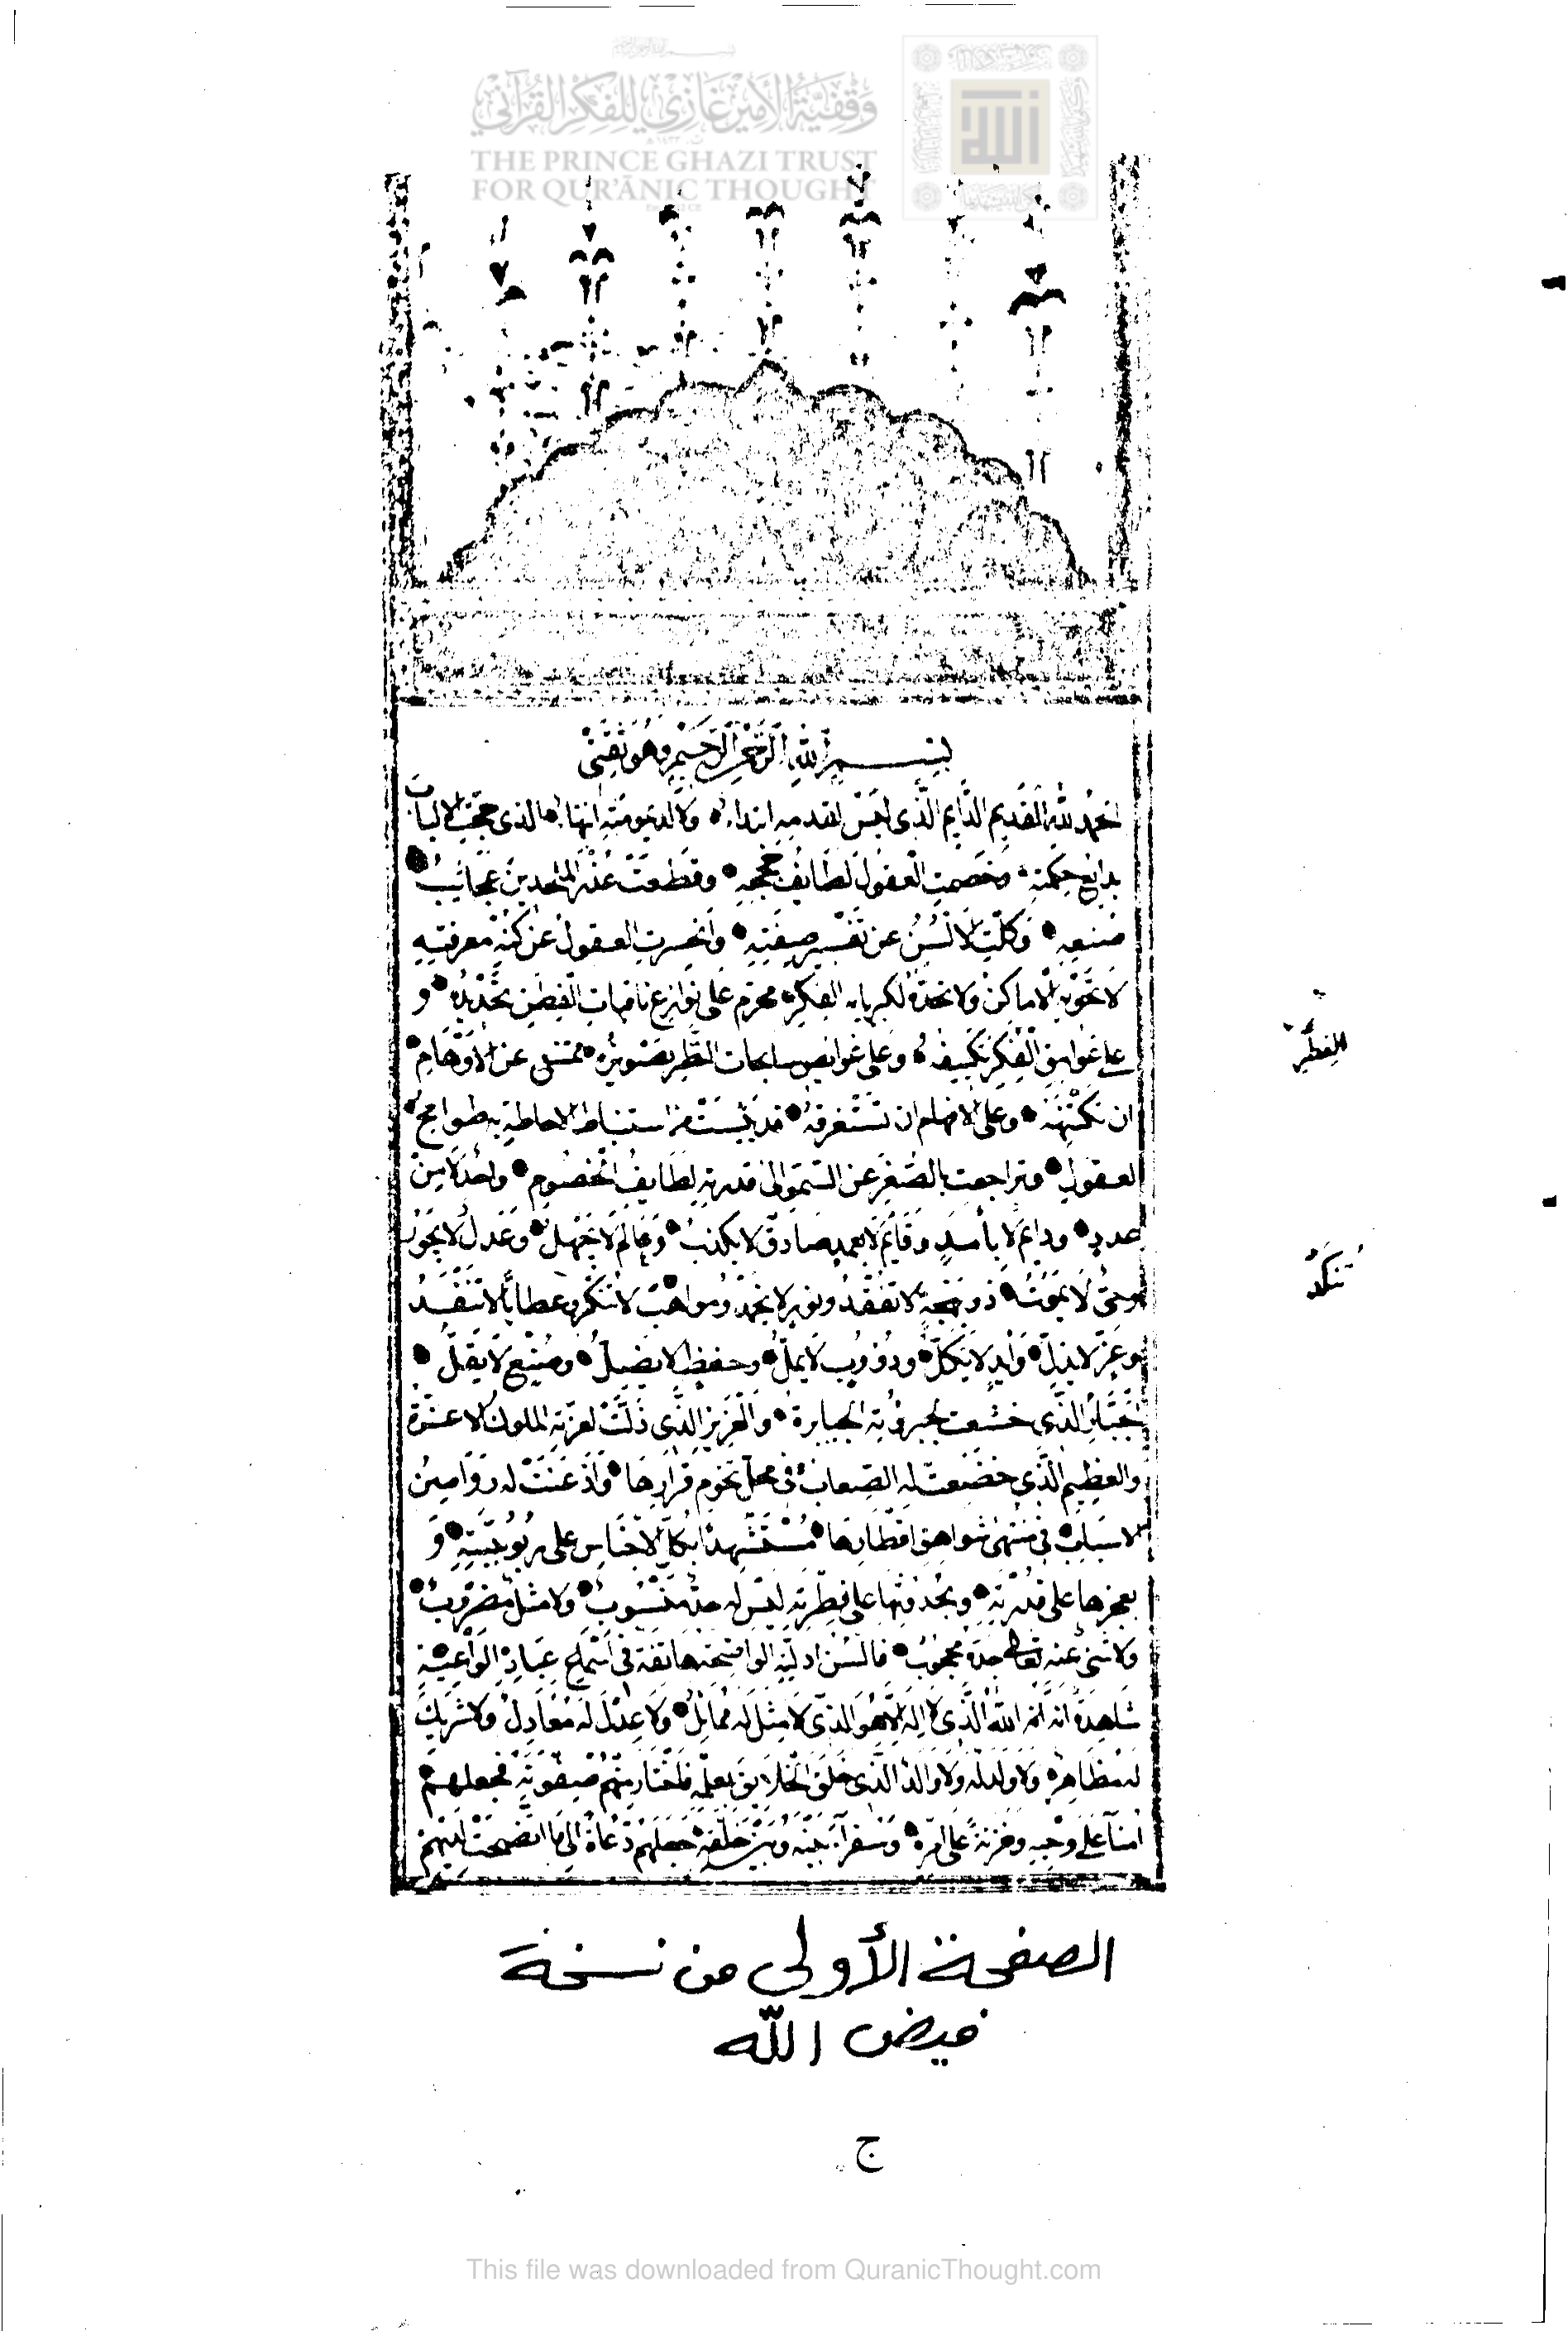 وقفية الأمير غازي للفكر القرآني
THE PRINCE GHAZI TRUST
FOR QUR'ĀNIC THOUGHT
بسم الله الرحمن الرحيم وهو ثقتي
الحمد لله القديم الدايم الذي ليس لقدمه ابتداء ولا لديموميته انتهاء الذي حجت الالباب
بدايع حكمته وخصمت العقول لطايف حججه وقطعت عذر الملحدين عجائب
صنعه وكلت الالسن عن تفسير صفته وانحسرت العقول عن كنه معرفته
لا تحويه الاماكن ولا تحده لكبريايه الفكر محرم على نوازع ناقبات الفطن تحديده و
على غوايص الفكر تكييفه وعلى غوايص سابحات النظر تصويره ممتنع عن الاوهام
ان تكتنهه وعلى الافهام ان تستغرقه قد يئست من استنباط الاحاطة به طوامح
العقول وتراجعت بالصغر عن السمو الى قدرته لطايف الخصوم واحد لا من
عدد ودايم لا بأمد وقايم لا بعمد صادق لا يكذب وعالم لا يجهل وعدل لا يجور
وحي لا يموت ذو بهجة لا تفقد ونور لا يخمد ومواهب لا تنكد وعطايا لا تنفد
وعز لا يذل وأيد لا يكل ودؤوب لا يمل وحفيظ لا يضل وصنيع لا يقل
الجبار الذي خشعت لجبروته الجبابرة والعزيز الذي ذلت لعزته الملوك الاعزة
والعظيم الذي خضعت له الصعاب في محل تخوم قرارها واذعنت له رواصين
الاسباب في منتهى شواهق اقطارها مستشهدا بكل الاجناس على ربوبيته و
بعجزها على قدرته وبحدوثها على فطرته ليس له حد منسوب ولا مثل مضروب
ولا شيء عنه تعالى جده محجوب فالسن ادلته الواضحة هاتفة في اسماع عباده الواعية
شاهدة انه الله الذي لا اله الا هو الذي لا مثل له مماثل ولا عدل له معادل ولا شريك
له مظاهر ولا ولد له ولا والد الذي خلق الخلايق بعلمه فاختار منهم صفوته فجعلهم
امنآ على وحيه وخزنة على امره وسفرآ بينه وبين خلقه جعلهم دعاة الى ما اتضحت لديهم
الفطر
تنكد
الصفحة الأولى من نسخة
فيض الله
ج
This file was downloaded from QuranicThought.com